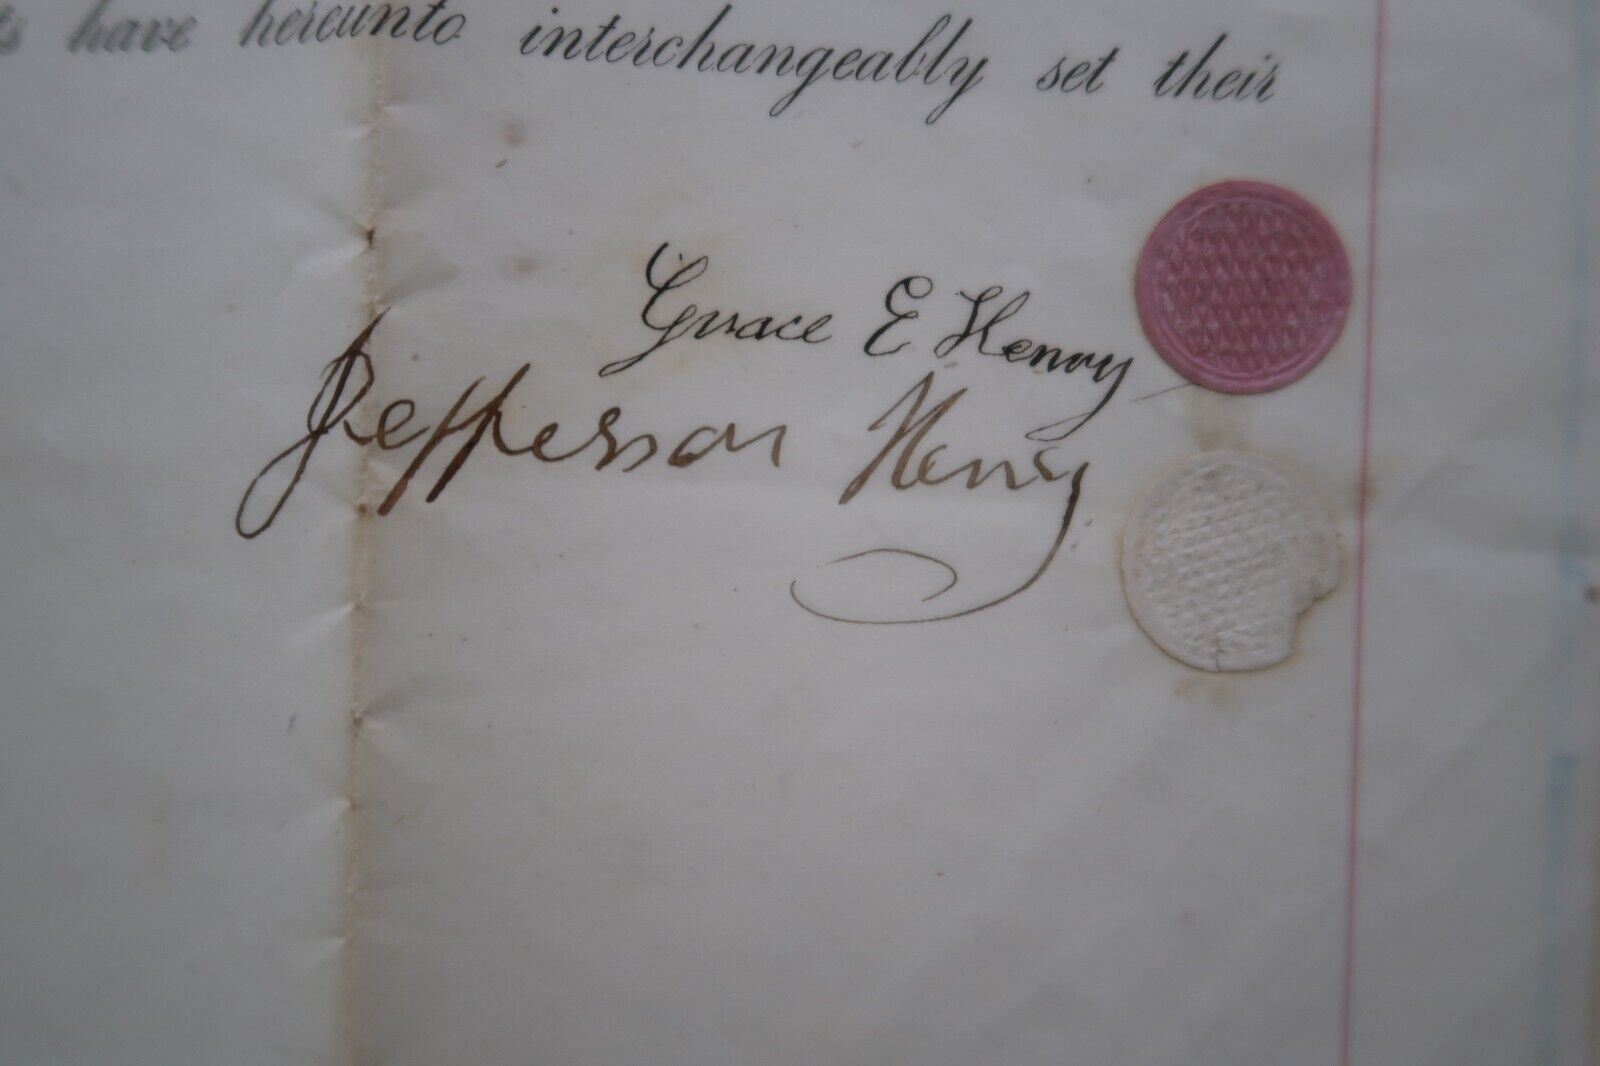 have hereunto interchangeably set their
Grace E Henry
Jefferson Henry